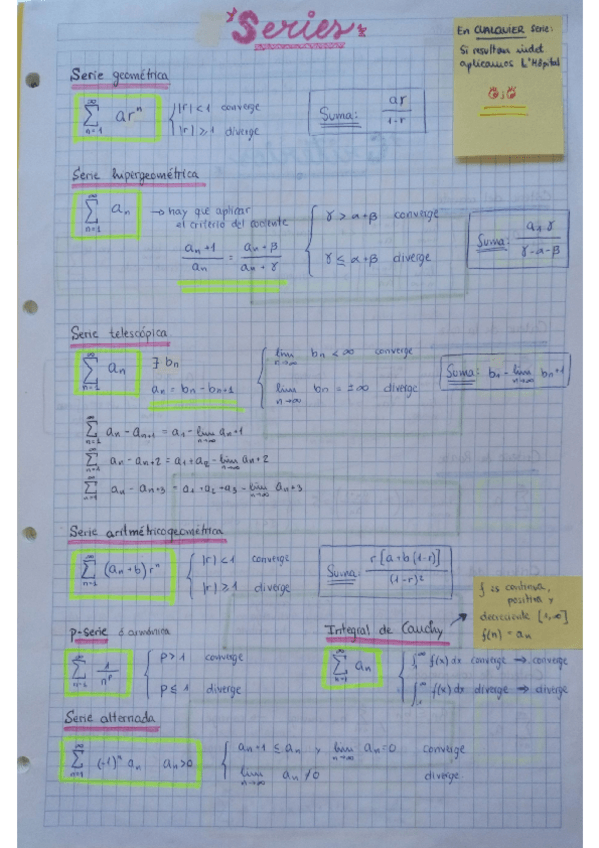 Series
En CUALQUIER serie:
Si resultan indet
aplicamos L'Hôpital
Serie geométrica
∑_{n=1}^{∞} ar^n
|r| < 1 converge
|r| ≥ 1 diverge
Suma: ar/(1-r)
Serie hipergeométrica
∑_{n=1}^{∞} a_n → hay que aplicar
el criterio del cociente
a_n+1/a_n = (αn+β)/(αn+γ)
γ > α+β converge
γ ≤ α+β diverge
Suma: a_1 γ/(γ-α-β)
Serie telescópica
∑_{n=1}^{∞} a_n ∃ b_n
a_n = b_n - b_n+1
lim_{n→∞} b_n < ∞ converge
lim_{n→∞} b_n = ±∞ diverge
Suma: b_1 - lim_{n→∞} b_n+1
∑_{n=1}^{∞} a_n - a_n+1 = a_1 - lim_{n→∞} a_n+1
∑_{n=1}^{∞} a_n - a_n+2 = a_1+a_2 - lim_{n→∞} a_n+2
∑_{n=1}^{∞} a_n - a_n+3 = a_1+a_2+a_3 - lim_{n→∞} a_n+3
Serie aritmétricogeométrica
∑_{n=1}^{∞} (an+b) r^n
|r| < 1 converge
|r| ≥ 1 diverge
Suma: r[a+b(1-r)]/(1-r)²
f es continua,
positiva y
decreciente [1,∞]
f(n) = a_n
p-serie ó armónica
∑_{n=1}^{∞} 1/n^p
p > 1 converge
p ≤ 1 diverge
Integral de Cauchy
∑_{n=1}^{∞} a_n
∫_1^∞ f(x) dx converge → converge
∫_1^∞ f(x) dx diverge → diverge
Serie alternada
∑_{n=1}^{∞} (-1)^n a_n a_n>0
a_n+1 ≤ a_n y lim_{n→∞} a_n = 0 converge
lim_{n→∞} a_n ≠ 0 diverge